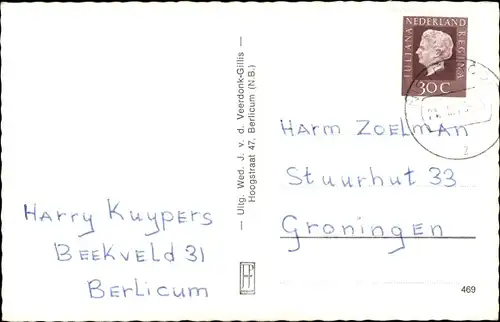 NEDERLAND
JULIANA
REGINA
30 C
Harm Zoelman
Stuurhut 33
Groningen
Harry Kuypers
Beekveld 31
Berlicum
— Uitg. Wed. J. v. d. Veerdonk-Gillis —
Hoogstraat 47, Berlicum (N.B.)
469